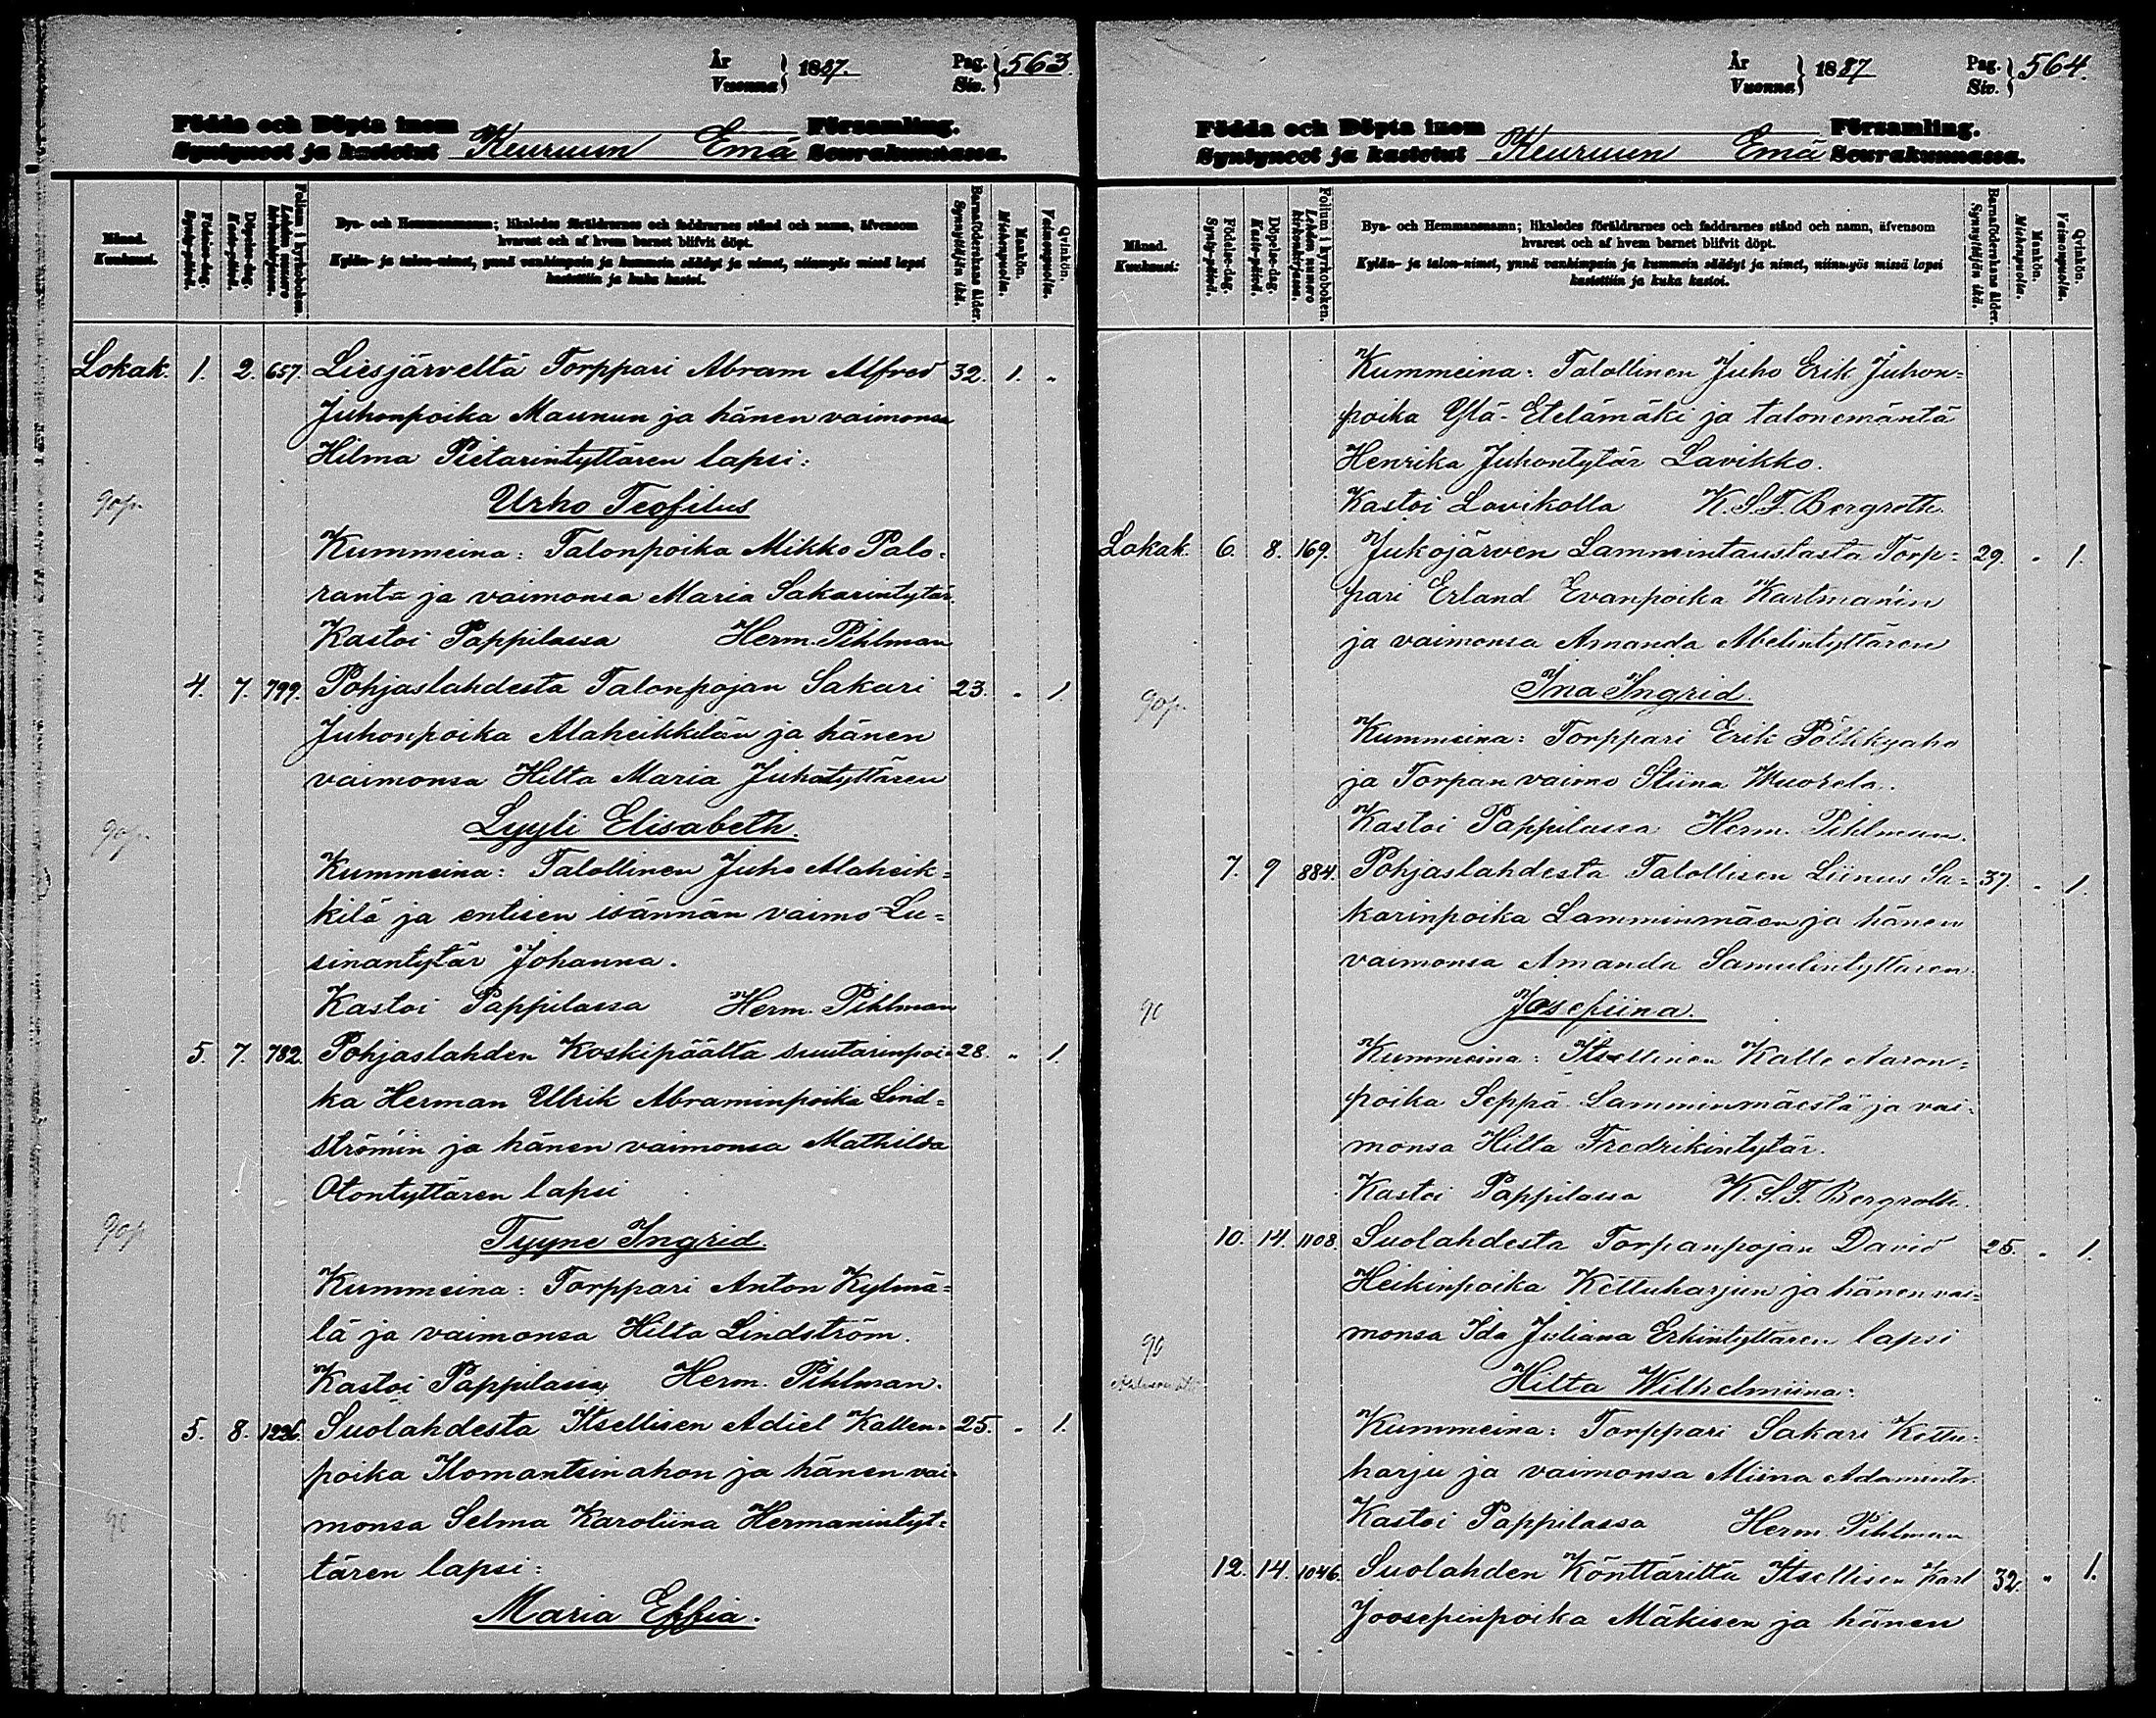 År
Vuonna } 1887. Pag.
Siv. } 563.
Födda och Döpta inom Församling.
Syntyneet ja kastetut Keuruun Emä Seurakunnassa.
Månad.
Kuukausi.
Födelse-dag.
Synty-päivä.
Döpelse-dag.
Kaste-päivä.
Folium i kyrkoboken.
Lehden numero
kirkonkirjassa.
Bya- och Hemmansnamn; likaledes föräldrarnes och faddrarnes stånd och namn, äfvensom
hvarest och af hvem barnet blifvit döpt.
Kylän- ja talon-nimet, ynnä vanhimpain ja kummein säädyt ja nimet, niinmyös missä lapsi
kastettiin ja kuka kastoi.
Barnaföderskans ålder.
Synnyttäjän ikä.
Mankön.
Miehenpuolia.
Qvinkön.
Vaimonpuolia.
Lokak. 1. 2. 657. Liesjärveltä Torppari Abram Alfred 32. 1. "
Juhonpoika Maunun ja hänen vaimonsa
Hilma Pietarintyttären lapsi:
Urho Teofilus
Kummeina: Talonpoika Mikko Palo-
ranta ja vaimonsa Maria Sakarintytär.
Kastoi Pappilassa Herm. Pihlman
4. 7. 799. Pohjaslahdesta Talonpojan Sakari 23. " 1.
Juhonpoika Alaheikkilän ja hänen
vaimonsa Hilta Maria Juhotyttären
Lyyli Elisabeth.
Kummeina: Talollinen Juho Alaheik=
kilä ja entisen isännän vaimo Lu=
sinantytär Johanna.
Kastoi Pappilassa Herm. Pihlman
5. 7. 782. Pohjaslahden Koskipäältä suutarinpoi= 28. " 1.
ka Herman Ulrik Abraminpoika Lind=
ström'in ja hänen vaimonsa Mathilda
Otontyttären lapsi
Tyyne Ingrid.
Kummeina: Torppari Anton Kylmä=
lä ja vaimonsa Hilta Lindström.
Kastoi Pappilassa Herm. Pihlman.
5. 8. 1226. Suolahdesta Itsellisen Adiel Kallen= 25. " 1.
poika Ilomantsinahon ja hänen vai=
monsa Selma Karoliina Hermanintyt=
tären lapsi:
Maria Effia.
År
Vuonna } 1887 Pag.
Siv. } 564.
Födda och Döpta inom Församling.
Syntyneet ja kastetut Keuruun Emä Seurakunnassa.
Månad.
Kuukausi.
Födelse-dag.
Synty-päivä.
Döpelse-dag.
Kaste-päivä.
Folium i kyrkoboken.
Lehden numero
kirkonkirjassa.
Bya- och Hemmansnamn; likaledes föräldrarnes och faddrarnes stånd och namn, äfvensom
hvarest och af hvem barnet blifvit döpt.
Kylän- ja talon-nimet, ynnä vanhimpain ja kummein säädyt ja nimet, niinmyös missä lapsi
kastettiin ja kuka kastoi.
Barnaföderskans ålder.
Synnyttäjän ikä.
Mankön.
Miehenpuolia.
Qvinkön.
Vaimonpuolia.
Kummeina: Talollinen Juho Erik Juhon=
poika Ylä-Etelämäki ja talonemäntä
Henrika Juhontytär Lavikko.
Kastoi Lavikolla K.S.F. Bergroth.
Lokak. 6. 8. 169. Jukojärven Lammintaustasta Torp= 29. " 1.
pari Erland Evanpoika Kartman'in
ja vaimonsa Amanda Abelintyttären
Ina Ingrid.
Kummeina: Torppari Erik Pölkkyaho
ja Torpan vaimo Stiina Wuorela.
Kastoi Pappilassa Herm. Pihlman.
7. 9 884. Pohjaslahdesta Talollisen Liinus Sa= 37. " 1.
karinpoika Lamminmäen ja hänen
vaimonsa Amanda Samulintyttären
Josefiina.
Kummeina: Itsellinen Kalle Aaron=
poika Seppä Lamminmäestä ja vai=
monsa Hilta Fredrikintytär.
Kastoi Pappilassa K.S.F. Bergroth.
10. 14. 1108. Suolahdesta Torpanpojan David 25. " 1.
Heikinpoika Kettuharjun ja hänen vai=
monsa Ida Juliana Erkintyttären lapsi
Hilta Wilhelmiina.
Kummeina: Torppari Sakari Kettu=
harju ja vaimonsa Miina Adamintr.
Kastoi Pappilassa Herm. Pihlman
12. 14. 1046. Suolahden Könttäriltä Itsellisen Karl 32. " 1.
Joosepinpoika Mäkisen ja hänen